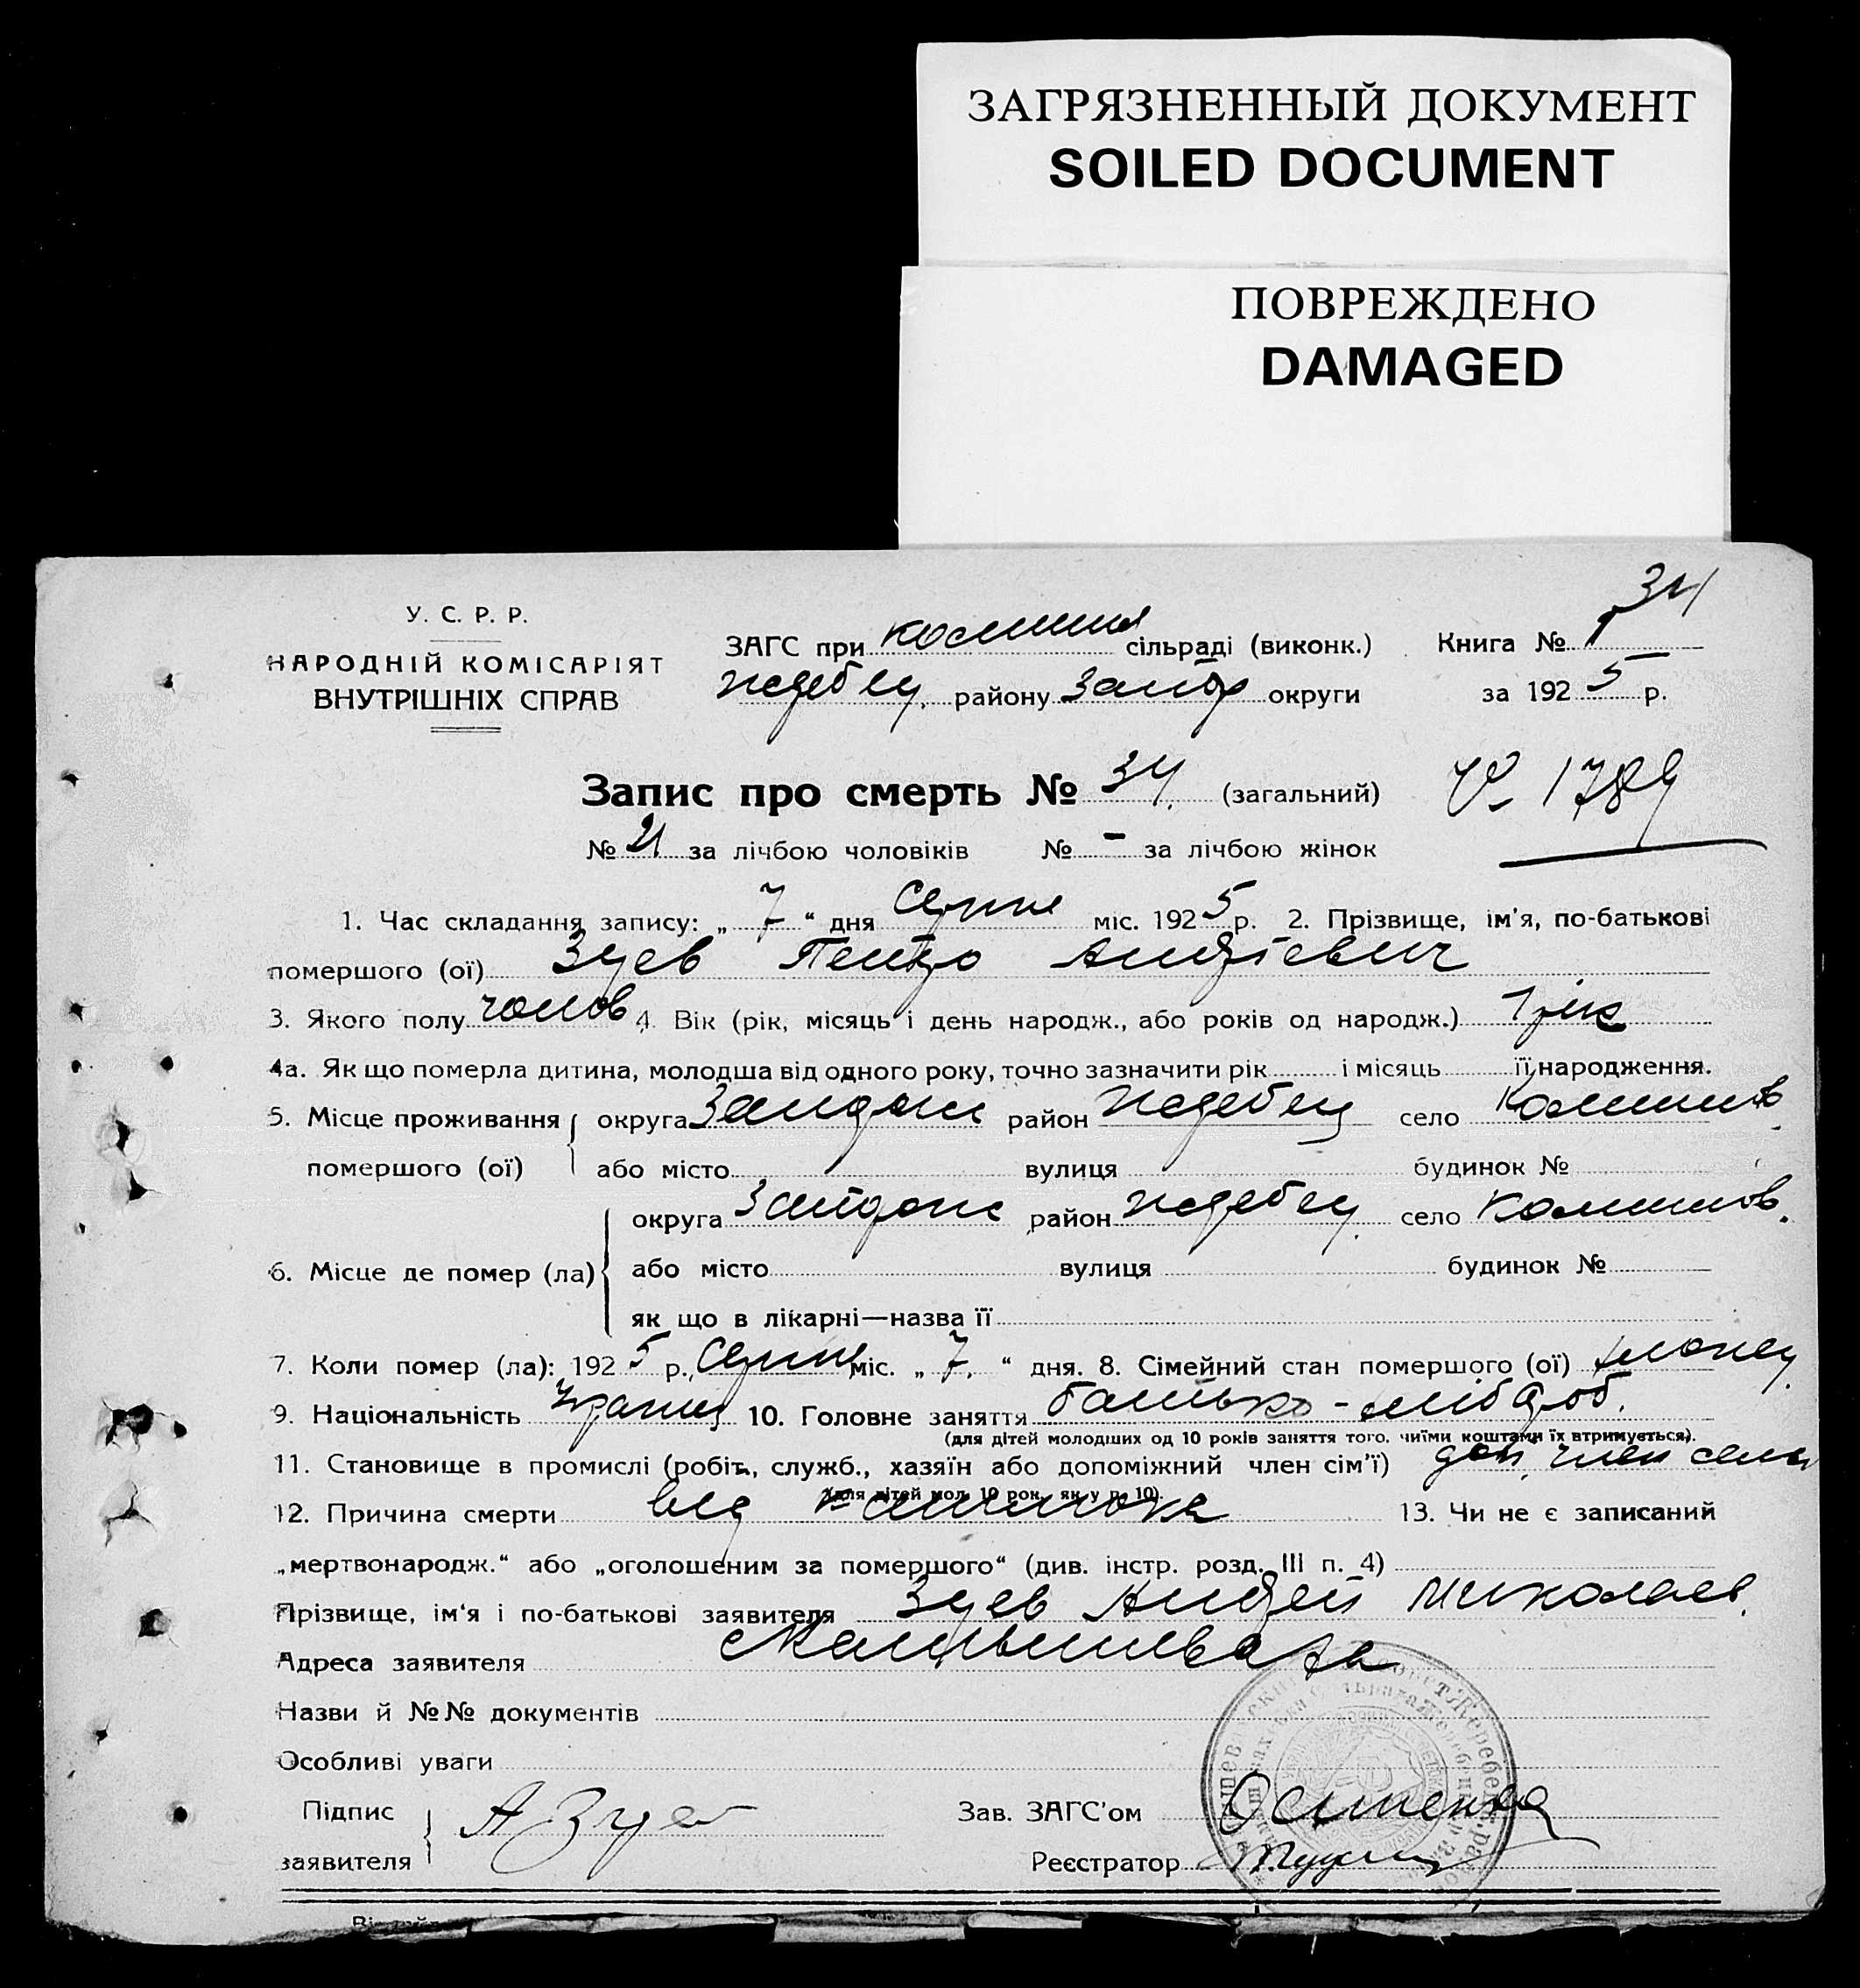 ЗАГРЯЗНЕННЫЙ ДОКУМЕНТ
SOILED DOCUMENT
ПОВРЕЖДЕНО
DAMAGED
34
У. С. Р. Р.
НАРОДНІЙ КОМІСАРІЯТ
ВНУТРІШНІХ СПРАВ
ЗАГС при сільраді (виконк.) Книга № 1
жеребец. району Запор округи за 1925 р.
Запис про смерть № 34. (загальний) № 1789
№ 21 за лічбою чоловіків № - за лічбою жінок
1. Час складання запису: „7“ дня Серпня міс. 1925 р. 2. Прізвище, ім'я, по-батькові
помершого (ої) Зуев Петро Андрієвич
3. Якого полу чолов 4. Вік (рік, місяць і день народж., або років од народж.) 1 рік
4а. Як що померла дитина, молодша від одного року, точно зазначити рік і місяць її народження.
5. Місце проживання округа Запорож район Жеребец село
помершого (ої) або місто вулиця будинок №
округа Запорож район жеребец. село
6. Місце де помер (ла) або місто вулиця будинок №
як що в лікарні—назва її
7. Коли помер (ла): 1925 р. Серпня міс. „7.“ дня. 8. Сімейний стан помершого (ої)
9. Національність Украінец 10. Головне заняття батько - хлібороб.
(для дітей молодших од 10 років заняття того, чиїми коштами їх втримується).
11. Становище в промислі (робіт., служб., хазяїн або допоміжний член сім'ї) доп. член семьи
(для дітей мол. 10 рок. як у п. 10).
12. Причина смерти від 13. Чи не є записаний
„мертвонародж.“ або „оголошеним за помершого“ (див. інстр. розд. III п. 4)
Прізвище, ім'я і по-батькові заявителя Зуев Андрей Миколаев.
Адреса заявителя
Назви й №№ документів
Особливі уваги
Підпис А Зуев Зав. ЗАГС'ом
заявителя Реєстратор